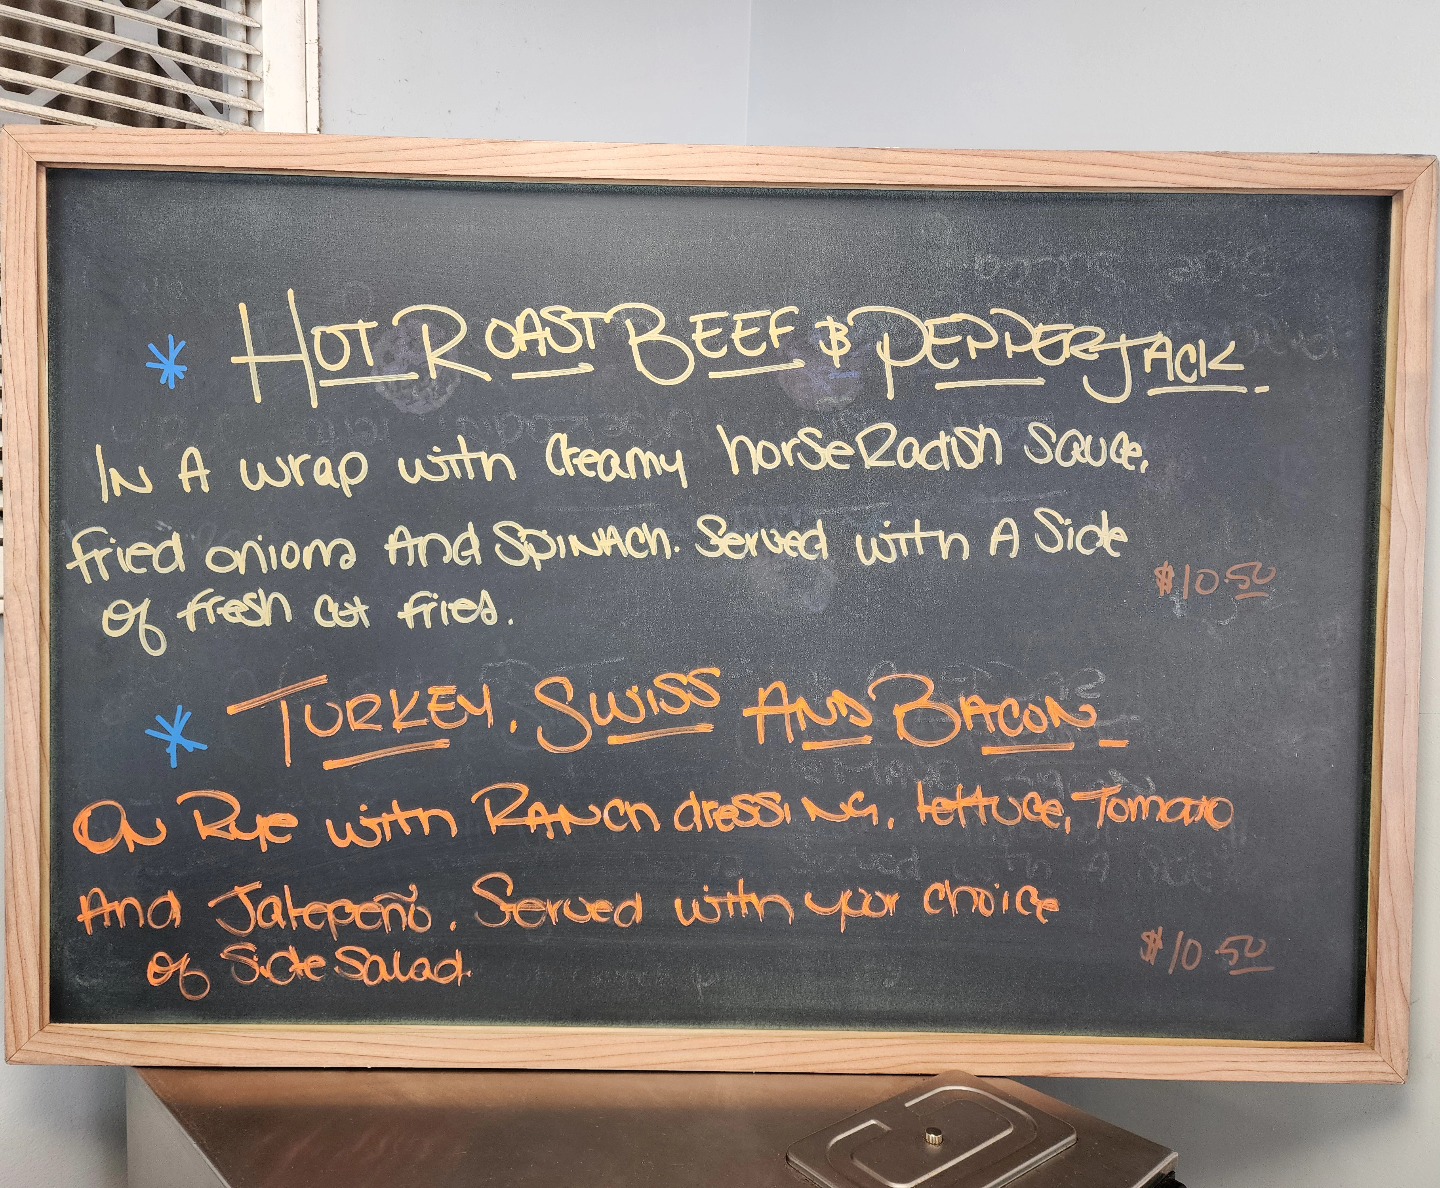 * HOT ROAST BEEF & PEPPERJACK
IN A wrap with creamy horseRadish Sauce,
fried onions And SpiNAch. Served with A Side
$10.50
of fresh cut fries.
* TURKEY, SWISS AND BACON
ON Rye with RANch dressiNG, lettuce, Tomato
And Jalepeño. Served with your choice
$10.50
of Side Salad.